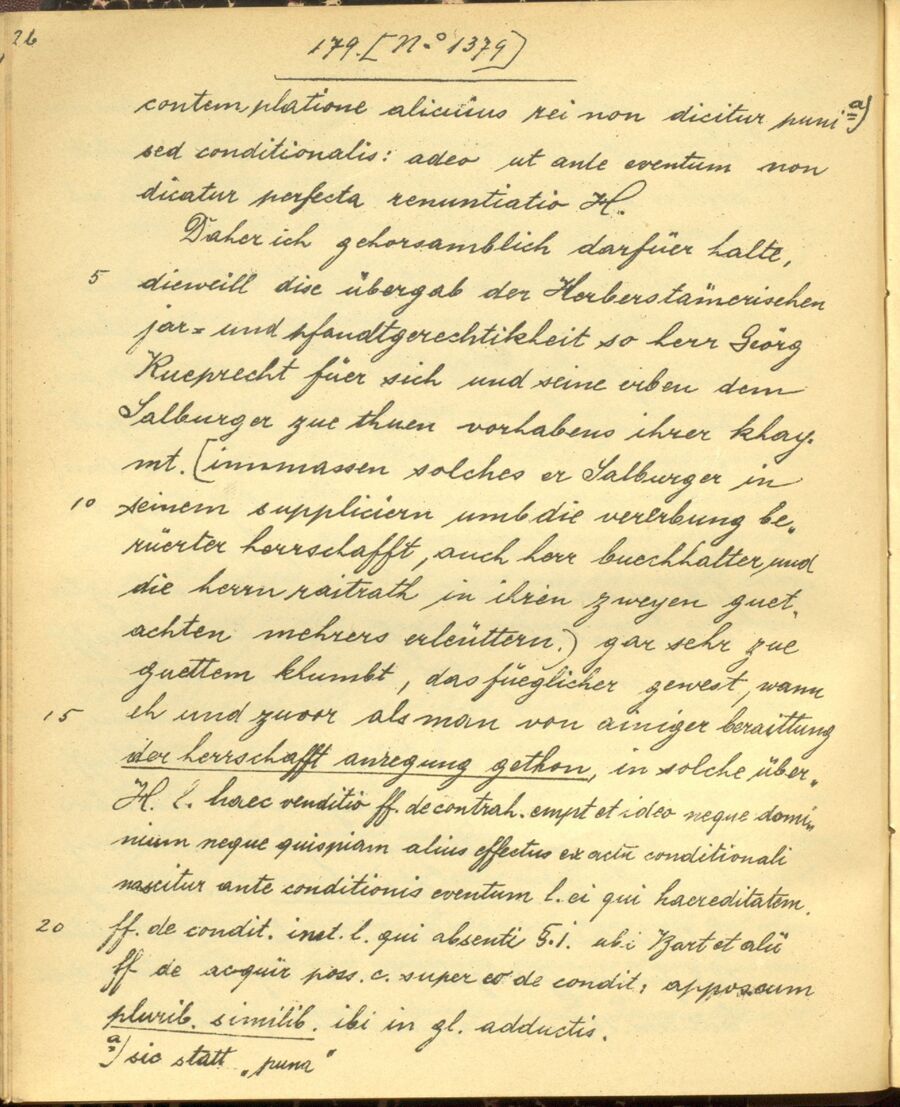 26
179. [N.° 1379]
contemplatione alicuius rei non dicitur puni a)
sed conditionalis: adeo ut ante eventum non
dicatur perfecta renuntiatio H.
Daher ich gehorsamblich darfüer halte,
5 dieweill dise übergab der Herberstämerischen
jar= und pfandtgerechtikheit so herr Geörg
Rueprecht füer sich und seine erben dem
Salburger zue thuen vorhabens ihrer khay.
mt. (inmassen solches er Salburger in
10 seinem suppliciern umb die vererbung be„
rüerter herrschafft, auch herr buechhalter, und
die herrn raitrath in ihren zweyen guet„
achten mehrers erleüttern.) gar sehr zue
guettem khumbt, das füeglicher gewest, wann
15 eh und zuvor als man von ainiger beraittung
der herrschafft anregung gethon, in solche über„
H. l. haec venditio ff. de contrah. empt et ideo neque domi„
nium neque quispiam alius effectus ex actu conditionali
nascitur ante conditionis eventum l. ei qui haereditatem.
20 ff. de condit. inst. l. qui absenti §. 1. ubi Bart et alii
ff de acquir poss. c. super eo de condit: apposcum
plurib. similib. ibi in gl. adductis.
a) sic statt „pura“